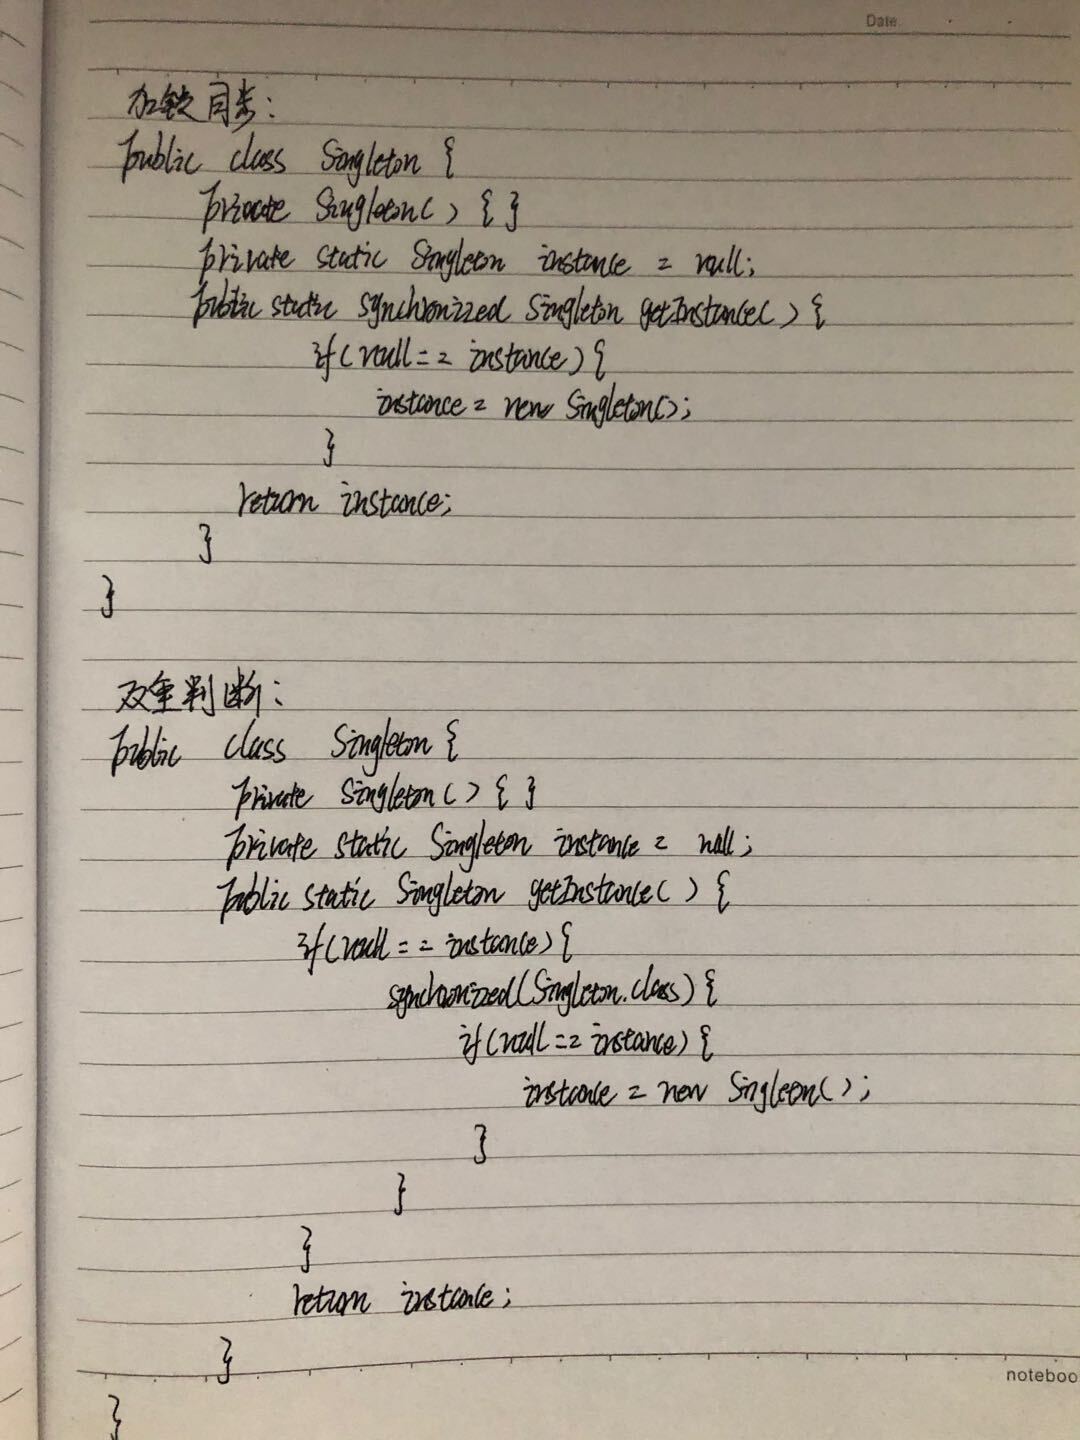 Date
加锁同步:
public class Singleton {
private Singleton() { }
private static Singleton instance = null;
public static synchronized Singleton getInstance() {
if(null == instance) {
instance = new Singleton();
}
return instance;
}
}
双重判断:
public class Singleton {
private Singleton() { }
private static Singleton instance = null;
public static Singleton getInstance() {
if(null == instance) {
synchronized(Singleton.class) {
if(null == instance) {
instance = new Singleton();
}
}
}
return instance;
}
noteboo
}